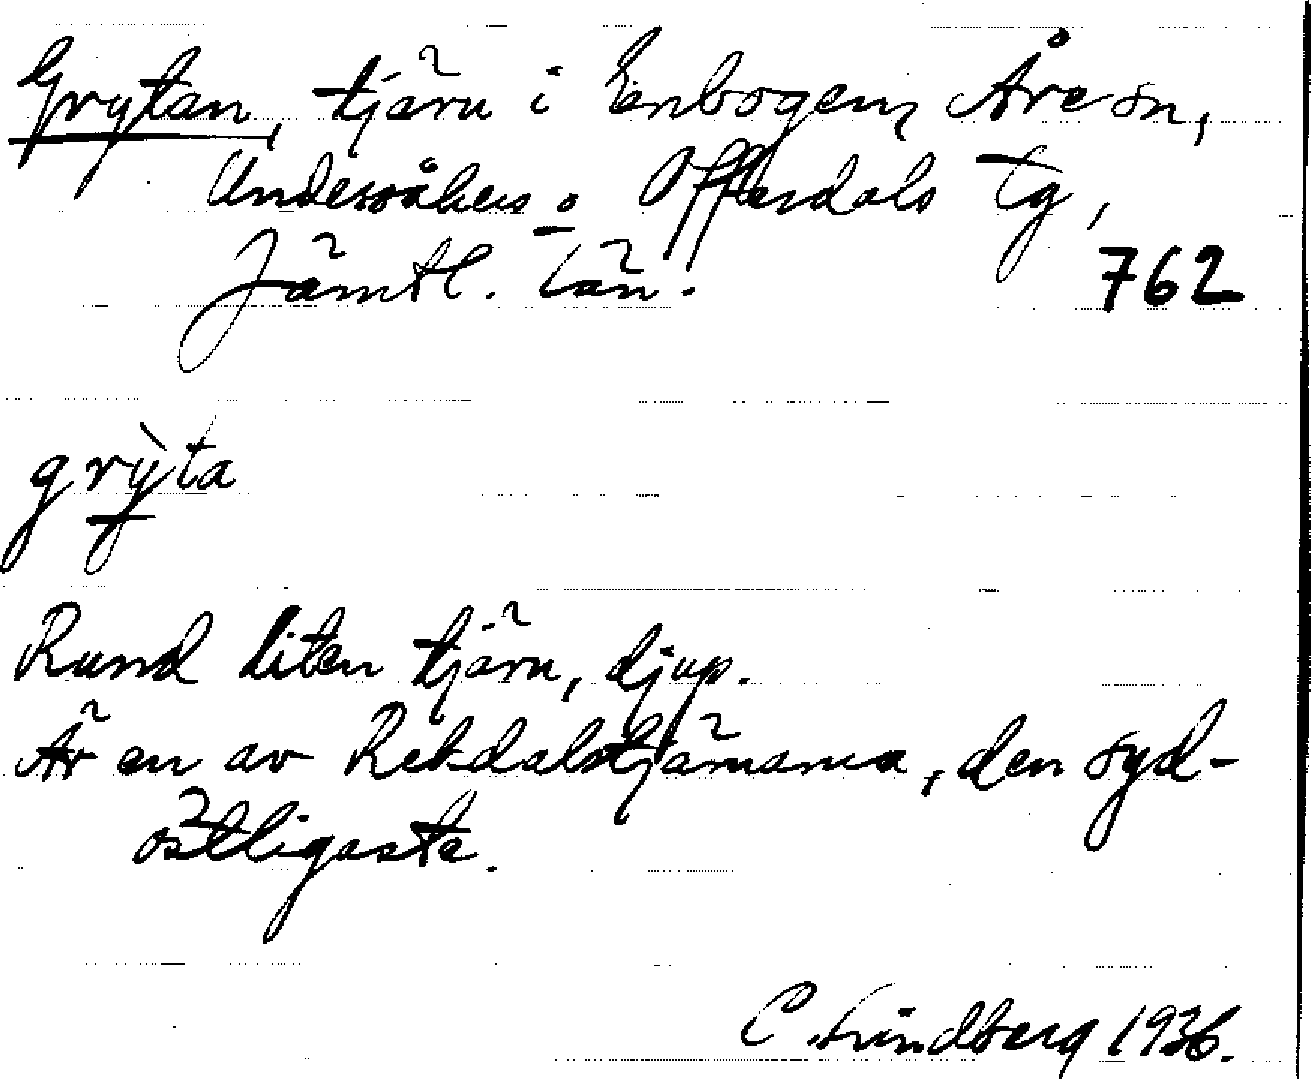 Grytan, tjärn i Enbogen, Åre sn,
Undersåkers o. Offerdals tg,
Jämtl. län.
762
grỳta
Rund liten tjärn, djup.
Är en av Rekdalstjärnarna, den syd-
östligaste.
C. Lindberg 1936.